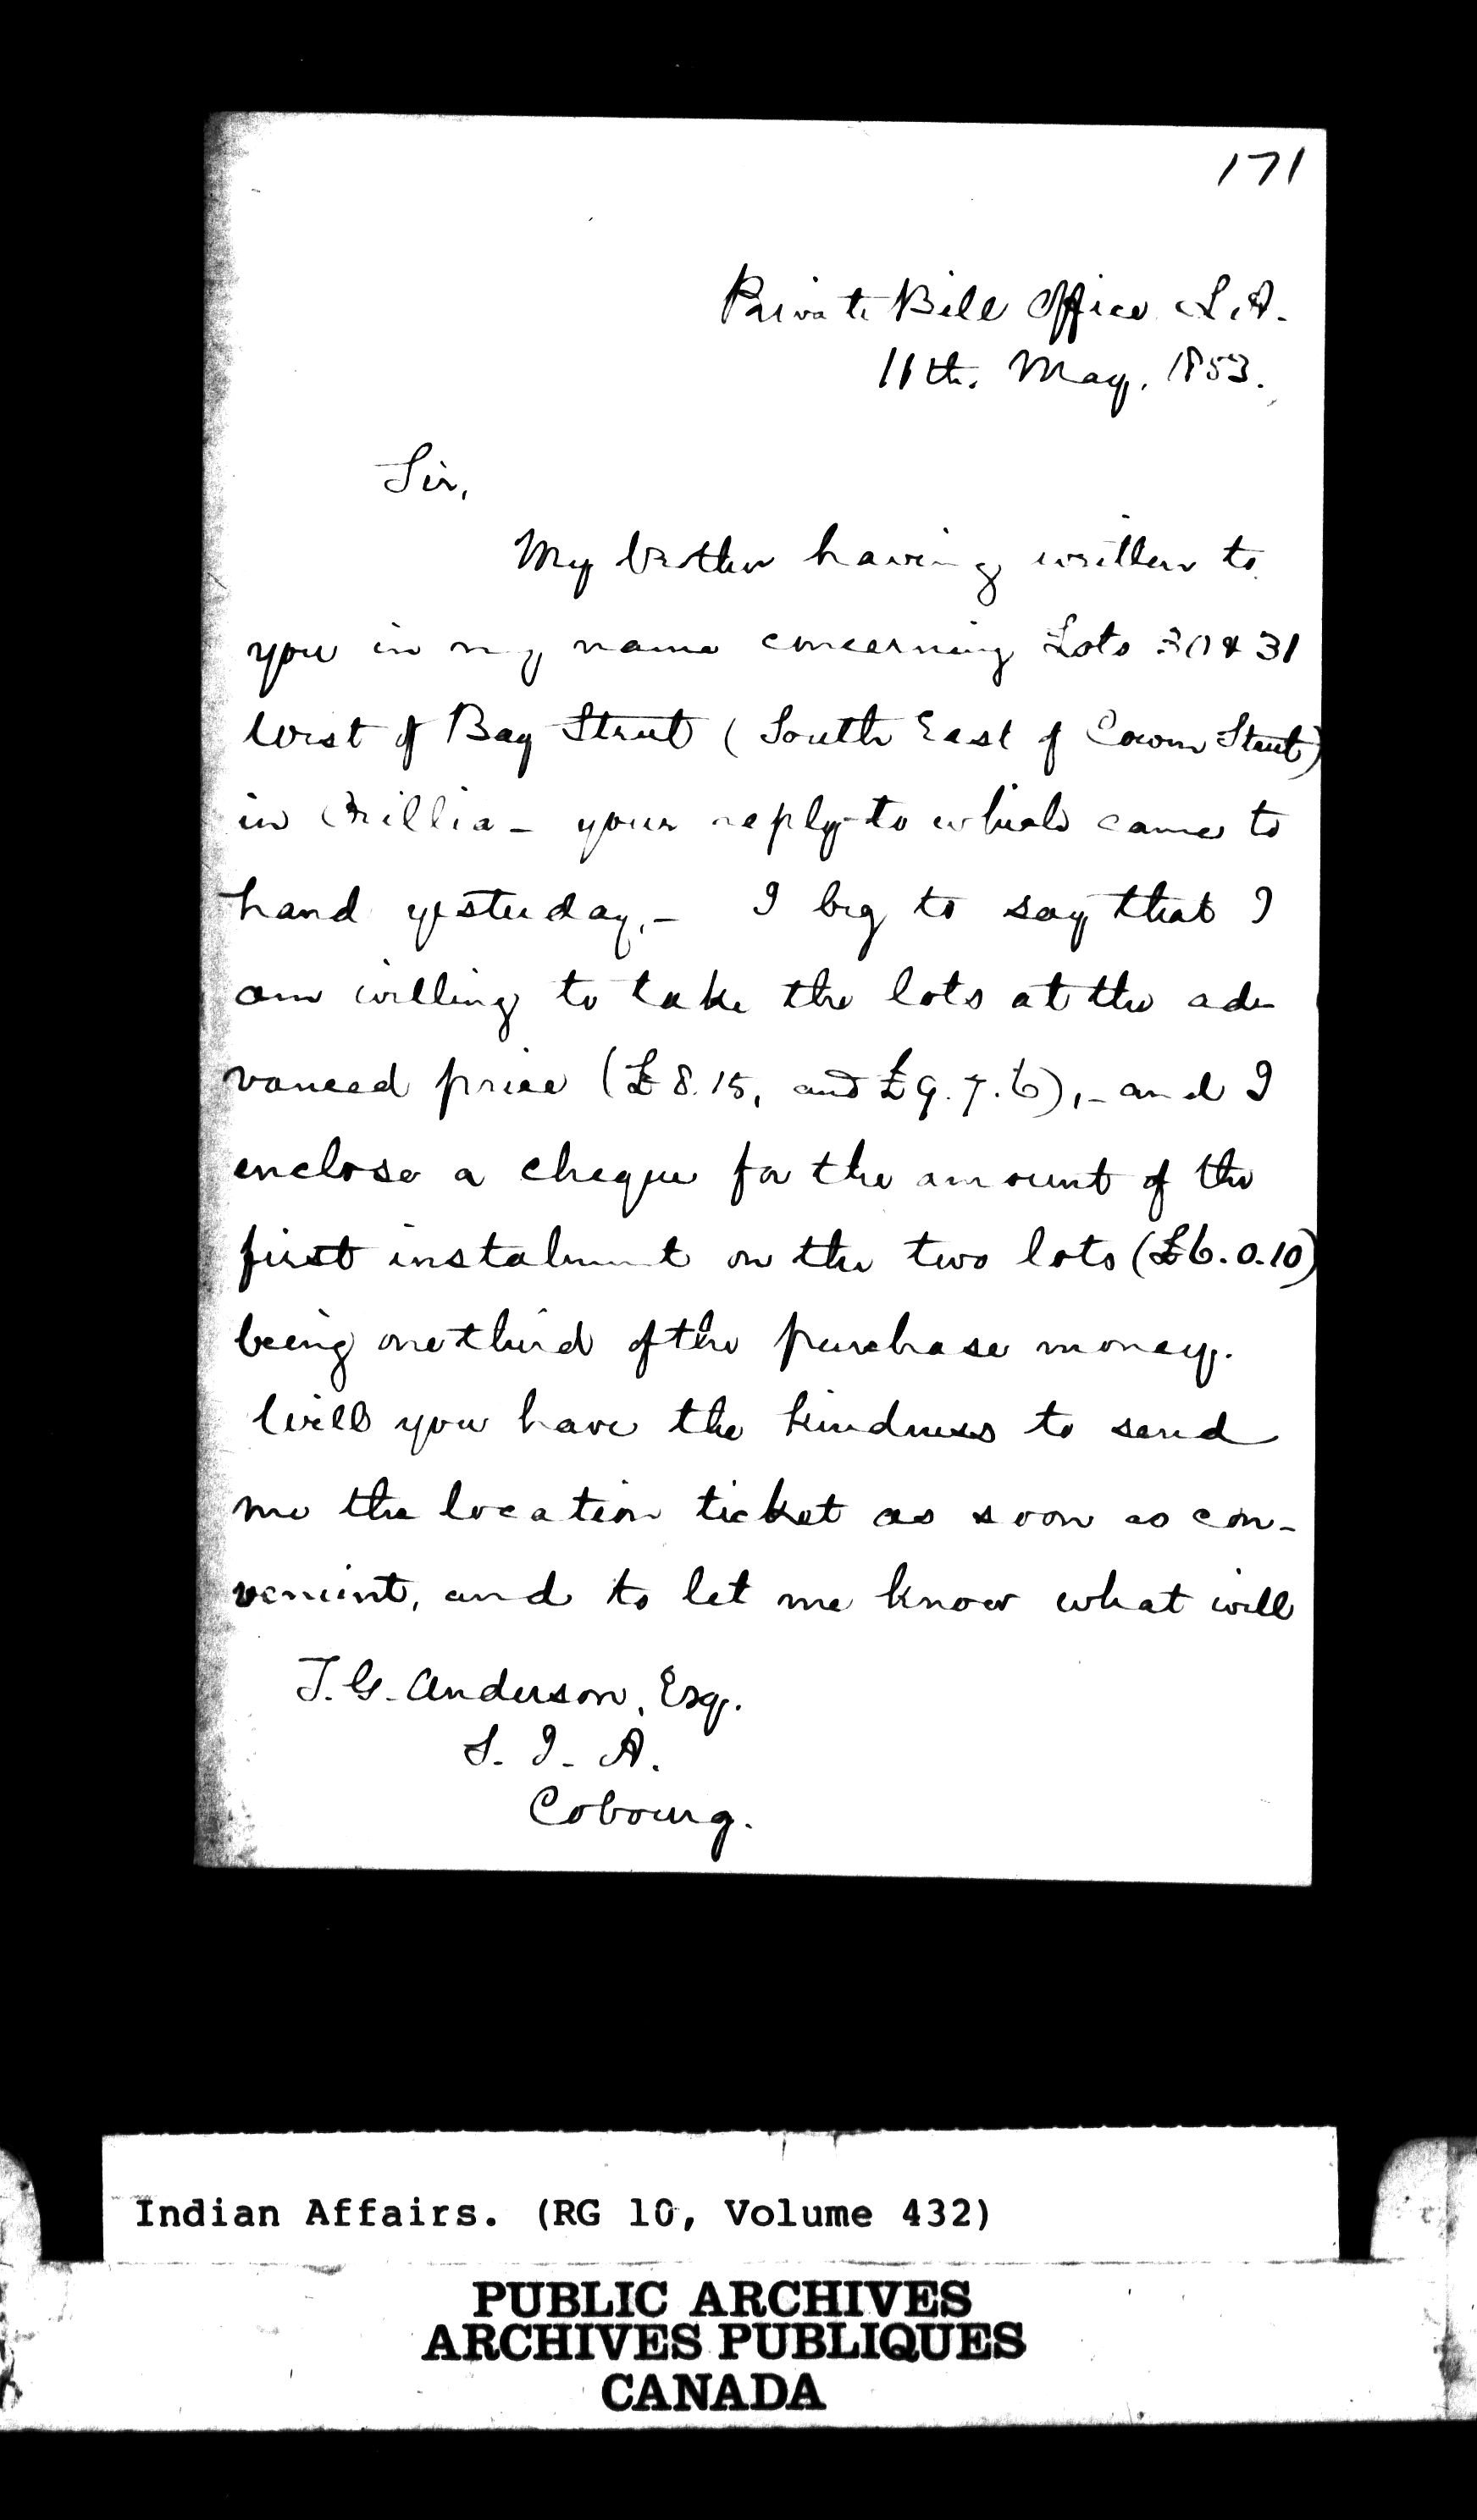 171
Private Bill Office L.A.
11th. May, 1853.
Sir,
My brother having written to
you in my name concerning Lots 30 & 31
West of Bay Street (South East of Coum Street)
in Orillia - your reply to which came to
hand yesterday, - I beg to say that I
am willing to take the lots at the ad-
vanced price (£8.15, and £9.7.6), - and I
enclose a cheque for the amount of the
first instalment on the two lots (£6.0.10)
being one third of the purchase money.
Will you have the kindness to send
me the location ticket as soon as con-
venient, and to let me know what will
T.G. Anderson, Esq.
S. I. A.
Cobourg.
Indian Affairs. (RG 10, Volume 432)
PUBLIC ARCHIVES
ARCHIVES PUBLIQUES
CANADA